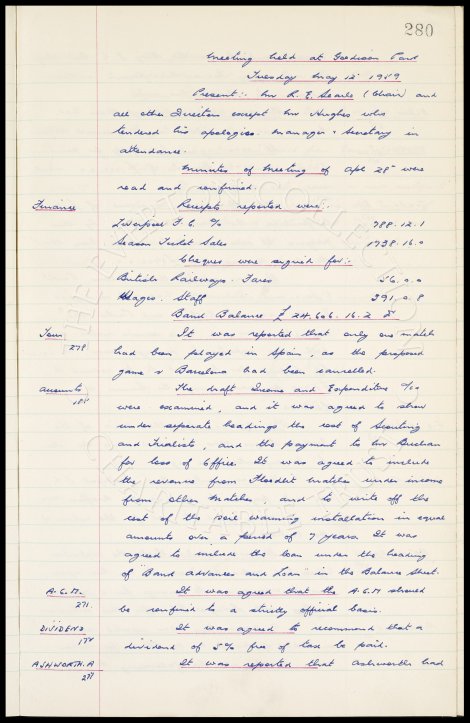 280
Meeting held at Goodison Park
Tuesday May 12 1959
Present:- Mr R. E. Searle (Chair) and
all other Directors except Mr Hughes who
tendered his apologies. Manager & Secretary in
attendance.
Minutes of Meeting of Apl 28 were
read and confirmed.
Finance Receipts reported were:-
Liverpool F.C. 788.12.1
Season Ticket Sales 1938.16.0
Cheques were signed for:-
British Railways. Fares 56.0.0
Wages. Staff 291.0.8
Bank Balance £ 24.606.16.2
Tour It was reported that only one match
278 had been played in Spain, as the proposed
game v Barcelona had been cancelled.
Accounts The draft Income and Expenditure a/cs
were examined, and it was agreed to show
under separate headings the cost of Scouting
and Trialists, and the payment to Mr Buchan
for loss of Office. It was agreed to include
the revenue from Floodlit matches under income
from other Matches, and to write off the
cost of the soil warming installation in equal
amounts over a period of 7 years. It was
agreed to include the loan under the heading
of "Bank advances and Loan" in the Balance Sheet.
A.G.M. It was agreed that the A.G.M should
271 be confined to a strictly official basis.
DIVIDEND It was agreed to recommend that a
dividend of 5% free of tax be paid.
ASHWORTH. A It was reported that Ashworth had